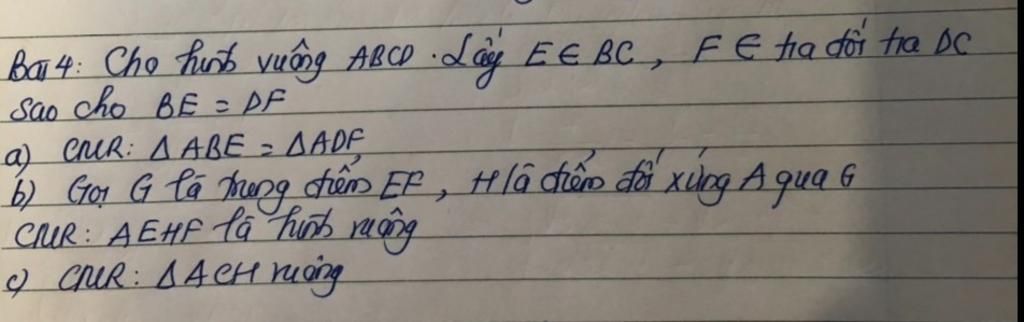 Bài 4: Cho hình vuông ABCD. Lấy E ∈ BC, F ∈ tia đối tia DC
sao cho BE = DF
a) CMR: Δ ABE = Δ ADF
b) Gọi G là trung điểm EF, H là điểm đối xứng A qua G
CMR: AEHF là hình vuông
c) CMR: Δ ACH vuông